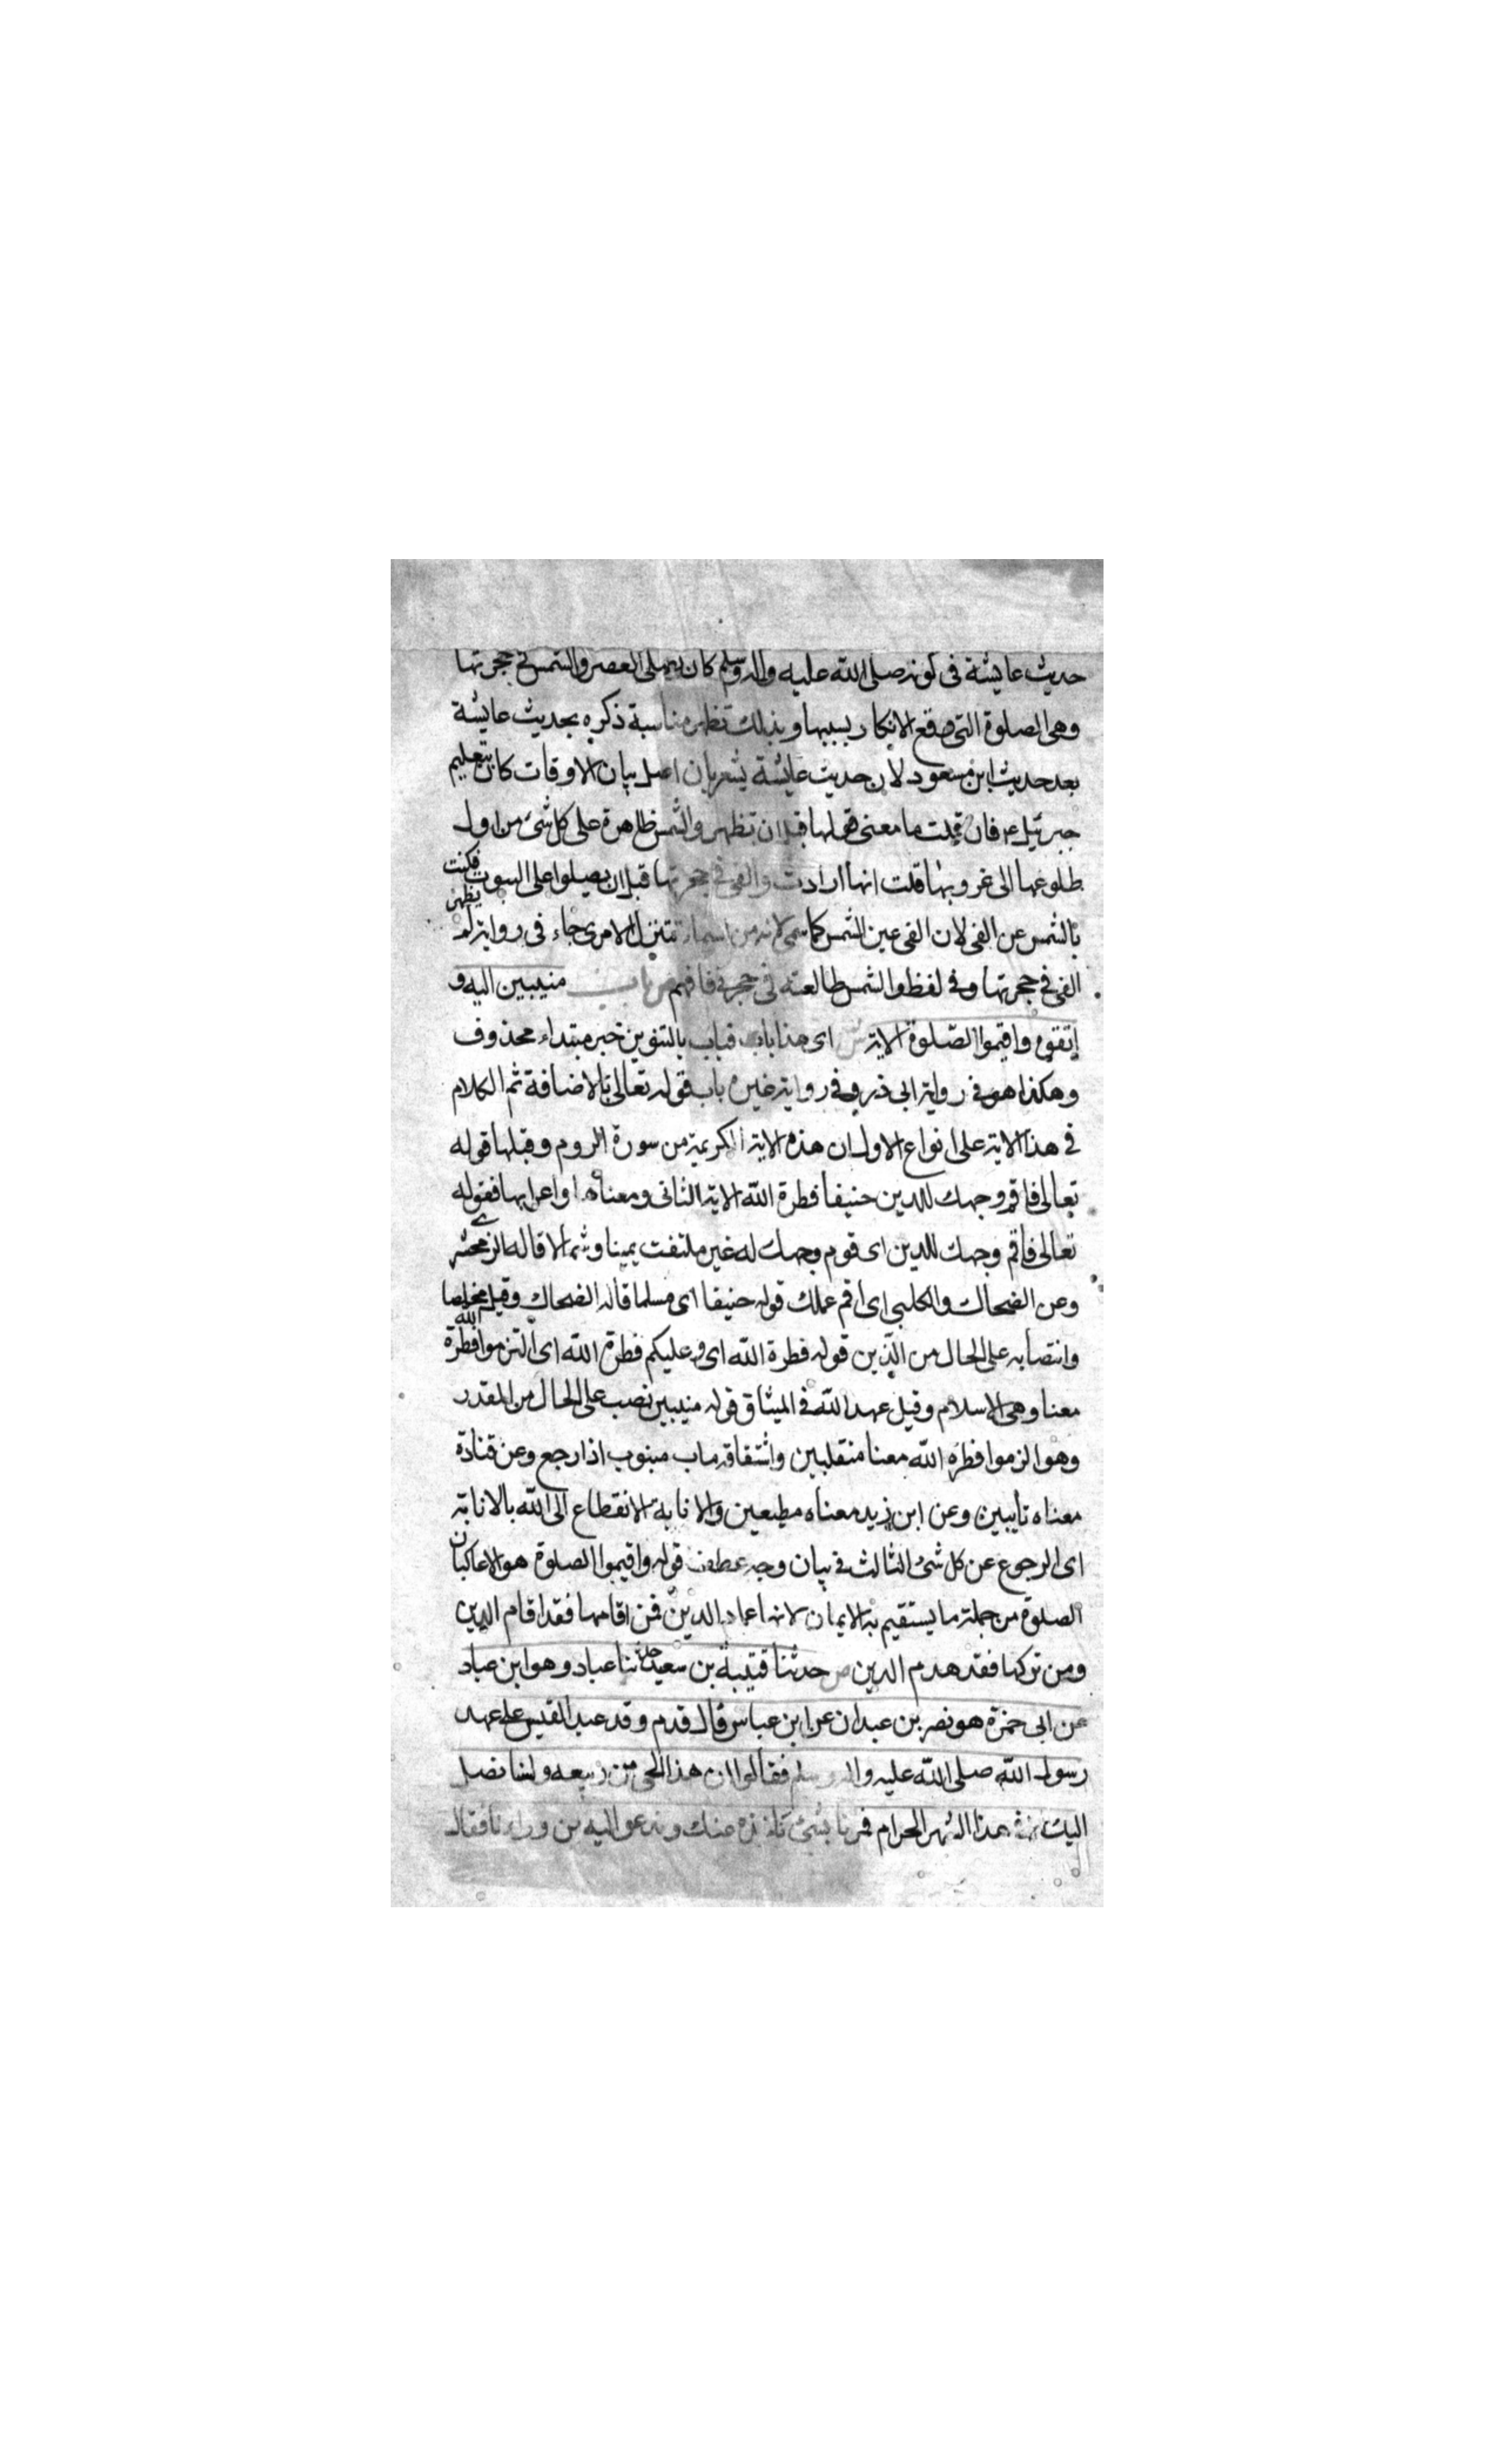 حديث عايشة فى كونه صلى الله عليه واله وسلم كان يصلى العصر والشمس فى حجرتها
وهى الصلوة التى وقع الانكار بسببها وبذلك تظهر مناسبة ذكره بحديث عايشة
بعد حديث ابن مسعود لان حديث عايشة يشعر بان اصل بيان الاوقات كان بتعليم
جبرئيل ع م فان قلت ما معنى قولها قبل ان تظهر والشمس ظاهرة على كل شئ من اول
طلوعها الى غروبها قلت انها ارادت والفى فى حجرتها قبل ان يصلوا على البيوت فكنت
بالشمس عن الفى لان الفى عين الشمس كما سمى لانه من اسما تنزل الامرى جاء فى رواية لم يظهر
الفى فى حجرتها وفى لفظ والشمس طالعته فى حجرتى فافهم ص باب منيبين اليه و
اتقوه واقيموا الصلوة الاية ش اى هذا باب فباب بالتنوين خبر مبتداء محذوف
وهكذا هو فى رواية ابى ذر وفى رواية غيره باب قوله تعالى بالاضافة ثم الكلام
فى هذا الاية على انواع الاول ان هذه الاية الكريمة من سورة الروم وقبلها قوله
تعالى فاقم وجهك للدين حنيفا فطرة الله الاية الثانى ومعناها واعرابها فقوله
تعالى فاقم وجهك للدين اى قوم وجهك له غير ملتفت يمينا وشمالا قاله الزمخشرى
وعن الضحاك والكلبى اى اقم عملك قوله حنيفا اى مسلما قاله الضحاك وقيل مخلصا
وانتصابه على الحال من الدين قوله فطرة الله اى وعليكم فطرة الله اى التزموا فطرة الله
معنا وهى الاسلام وقيل عهد الله فى الميثاق قوله منيبين نصب على الحال من المقدر
وهو الزموا فطره الله معنا منقلبين واشتقاقه ماب مينوب اذا رجع وعن قتادة
معناه تايبين وعن ابن زيد معناه مطيعين والانابة الانقطاع الى الله بالانابة
اى الرجوع عن كل شئ الثالث فى بيان وجه عطف قوله واقيموا الصلوة هو الاعاكبان
الصلوة من جملة ما يستقيم به الايمان لانها عماد الدين فمن اقامها فقد اقام الدين
ومن تركها فقد هدم الدين ص حدثنا قتيبة بن سعيد حدثنا عباد وهو ابن عباد
عن ابى حمزة هو نصر بن عبدان عن ابن عباس قال قدم وفد عبد القيس على عهد
رسول الله صلى الله عليه واله وسلم فقالوا ان هذا الحى من ربيعه ولسنا نصل
اليك فى هذا الشهر الحرام فمرنا بشئ ناخذه عنك وندعوا اليه من وراءنا فقال